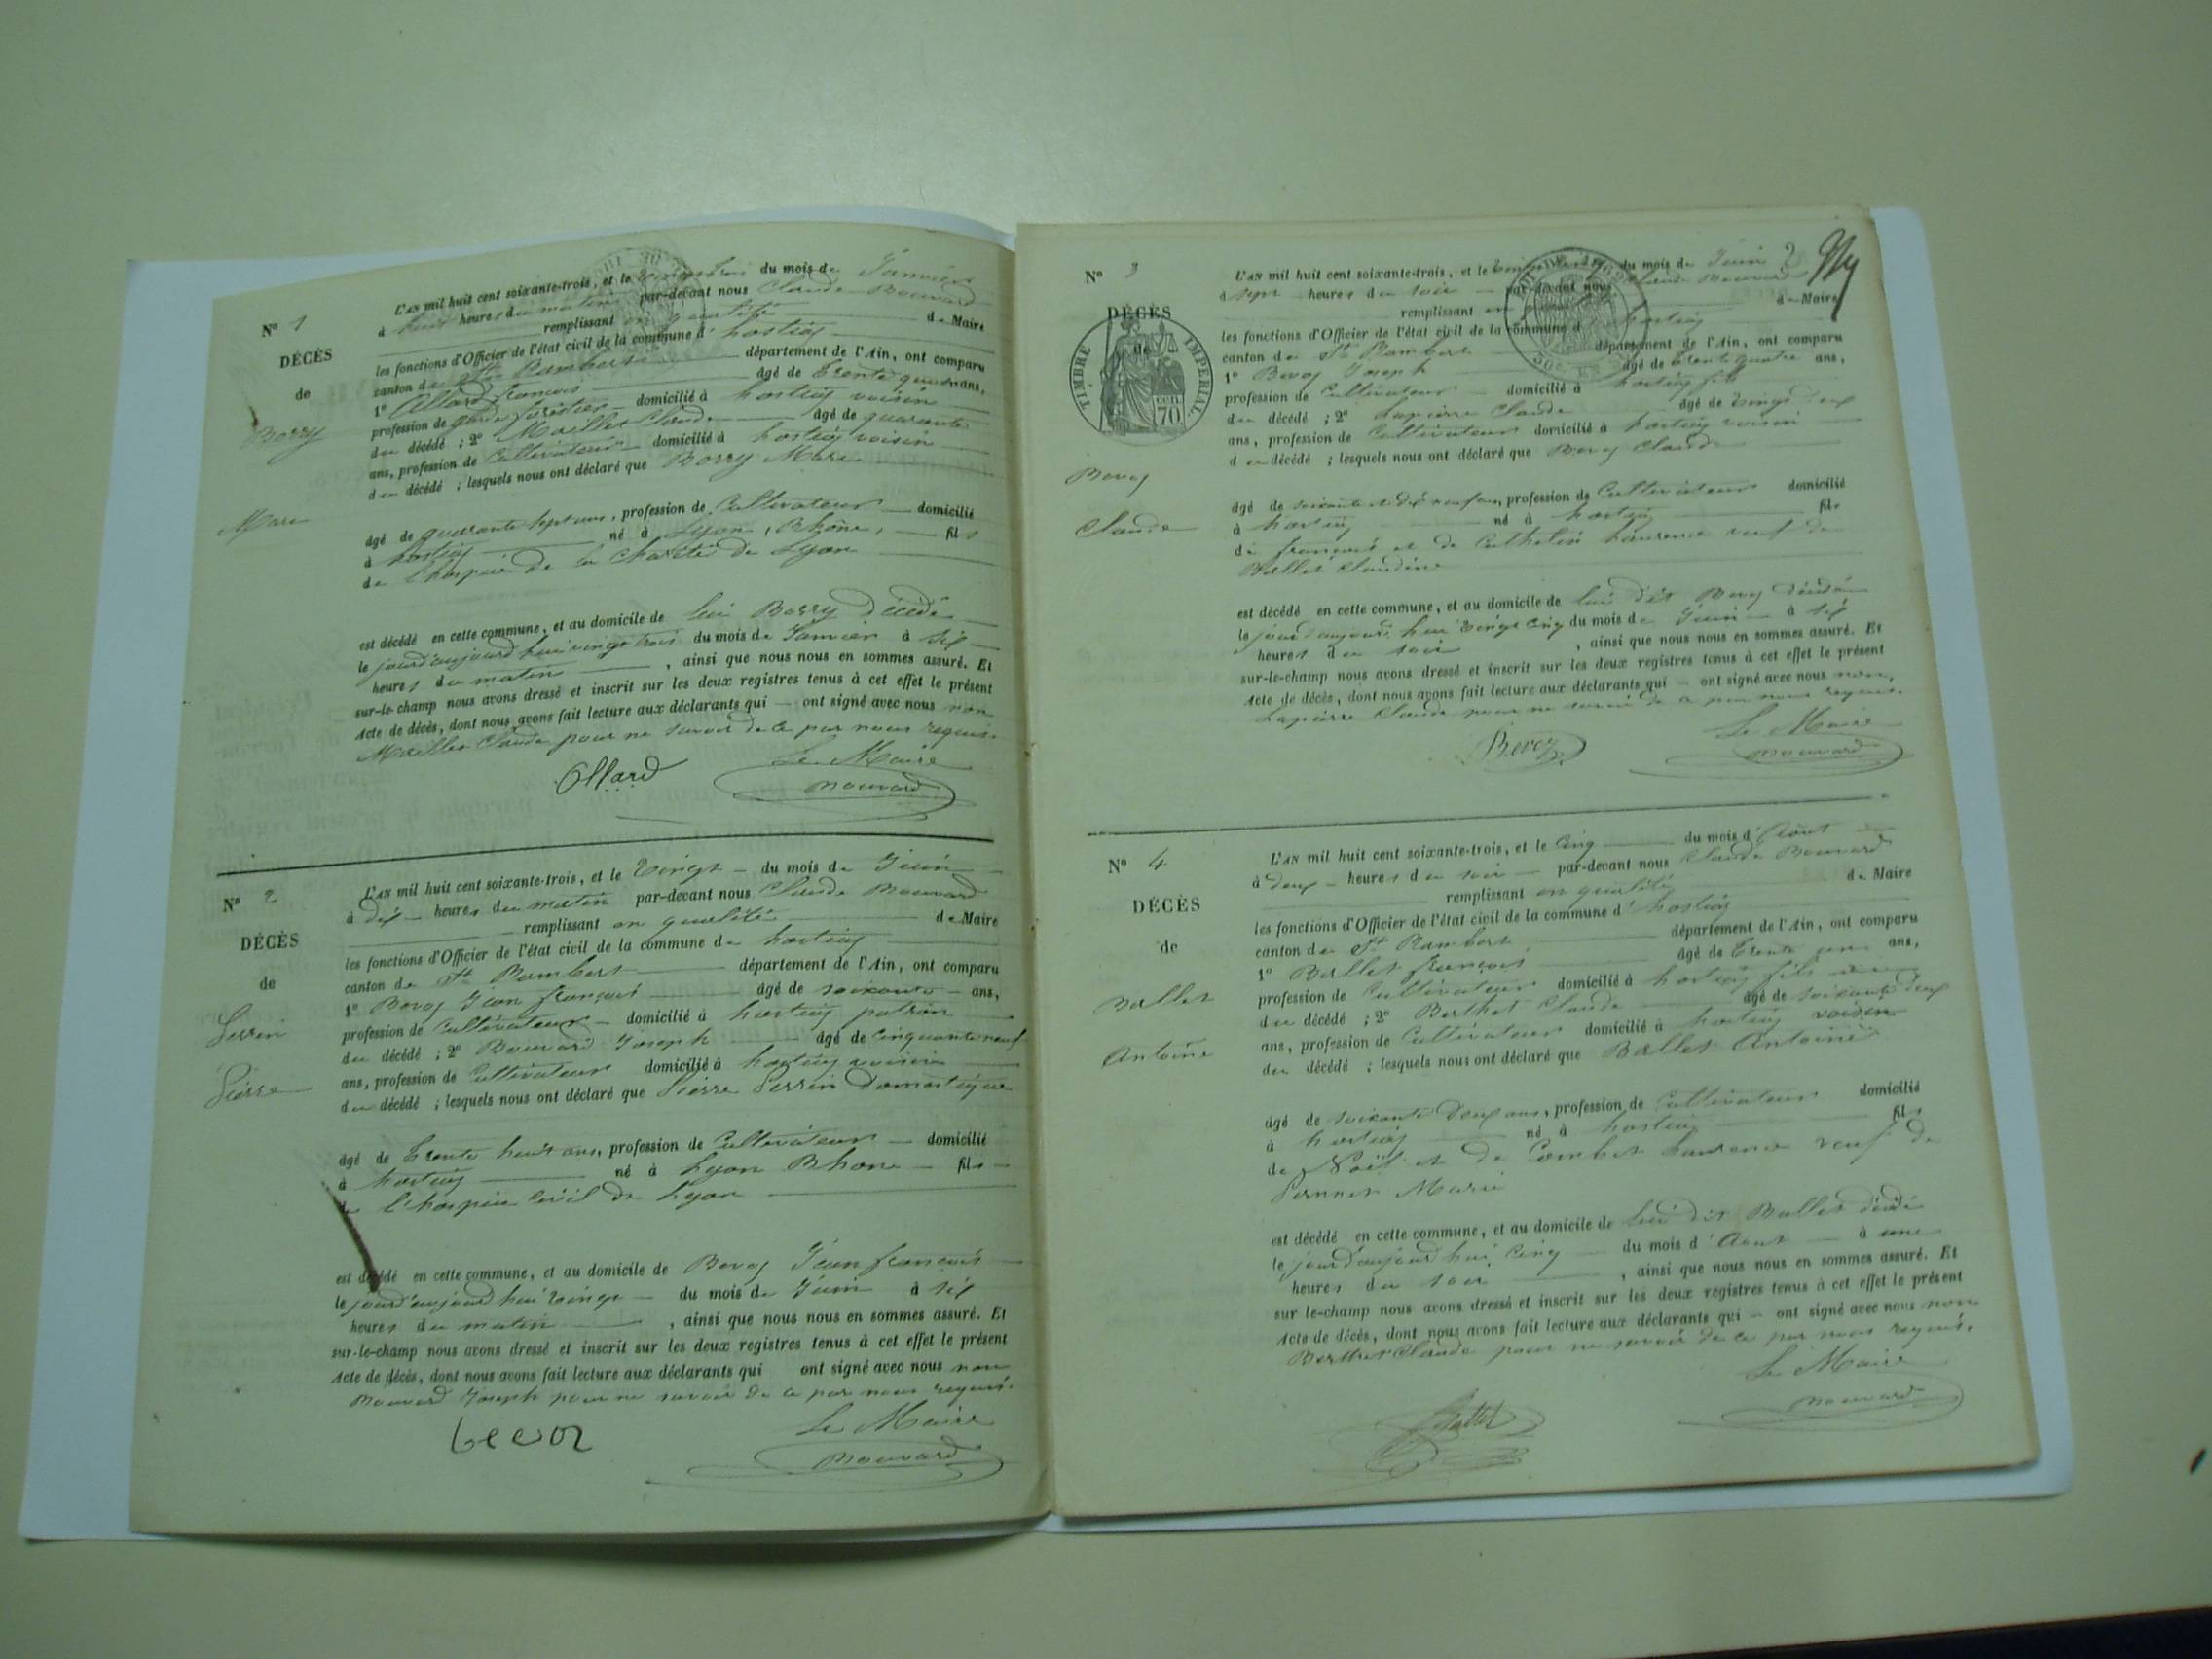 N° 1
DÉCÈS
de
Borry
Marc
L'AN mil huit cent soixante-trois, et le vingt trois du mois de Janvier
à huit heures du matin par-devant nous Claude Bouvard
remplissant en qualité de Maire
les fonctions d'Officier de l'état civil de la commune d' hostiaz
canton de St Rambert département de l'Ain, ont comparu
1° Allard françois âgé de trente quatre ans,
profession de garde forestier domicilié à hostiaz voisin
du décédé ; 2° Maillet Claude âgé de quarante
ans, profession de Cultivateur domicilié à hostiaz voisin
du décédé ; lesquels nous ont déclaré que Borry Marc
âgé de quarante sept ans, profession de Cultivateur domicilié
à hostiaz né à Lyon, Rhône, fils
de l'hospice de la Charité de Lyon
est décédé en cette commune, et au domicile de lui Borry décédé
le jourd'aujourd'hui vingt trois du mois de Janvier à six
heures du matin , ainsi que nous nous en sommes assuré. Et
sur-le-champ nous avons dressé et inscrit sur les deux registres tenus à cet effet le présent
Acte de décès, dont nous avons fait lecture aux déclarants qui ont signé avec nous non
Maillet Claude pour ne savoir de ce par nous requis.
Allard
Le Maire
Bouvard
N° 2
DÉCÈS
de
Perrin
Pierre
L'AN mil huit cent soixante-trois, et le vingt du mois de Juin
à dix heures du matin par-devant nous Claude Bouvard
remplissant en qualité de Maire
les fonctions d'Officier de l'état civil de la commune de hostiaz
canton de St Rambert département de l'Ain, ont comparu
1° Bevoz Jean françois âgé de soixante ans,
profession de Cultivateur domicilié à hostiaz patron
du décédé ; 2° Bouvard Joseph âgé de cinquante neuf
ans, profession de Cultivateur domicilié à hostiaz voisin
du décédé ; lesquels nous ont déclaré que Pierre Perrin Domestique
âgé de trente huit ans, profession de Cultivateur domicilié
à hostiaz né à Lyon Rhone fils
de l'hospice Civil de Lyon
est décédé en cette commune, et au domicile de Bevoz Jean françois
le jourd'aujourd'hui vingt du mois de Juin à six
heures du matin , ainsi que nous nous en sommes assuré. Et
sur-le-champ nous avons dressé et inscrit sur les deux registres tenus à cet effet le présent
Acte de décès, dont nous avons fait lecture aux déclarants qui ont signé avec nous non
Bouvard Joseph pour ne savoir de ce par nous requis.
Le Maire
Bouvard
N° 3
DÉCÈS
de
TIMBRE IMPERIAL
CEN. 70
Bevoz
Claude
L'AN mil huit cent soixante-trois, et le vingt cinq du mois de Juin 2
à sept heures du soir par-devant nous Claude Bouvard
remplissant en de Maire
les fonctions d'Officier de l'état civil de la commune d' hostiaz
canton de St Rambert département de l'Ain, ont comparu
1° Bevoz Joseph âgé de trente quatre ans,
profession de Cultivateur domicilié à hostiaz fils
du décédé ; 2° Lapierre Claude âgé de vingt deux
ans, profession de Cultivateur domicilié à hostiaz voisin
du décédé ; lesquels nous ont déclaré que Bevoz Claude
âgé de soixante et dix neuf ans, profession de Cultivateur domicilié
à hostiaz né à hostiaz fils
de françois et de Cathelin Laurence veuf de
Ballet Claudine
est décédé en cette commune, et au domicile de lui dit Bevoz décédé
le jourd'aujourd'hui vingt cinq du mois de Juin à six
heures du soir , ainsi que nous nous en sommes assuré. Et
sur-le-champ nous avons dressé et inscrit sur les deux registres tenus à cet effet le présent
Acte de décès, dont nous avons fait lecture aux déclarants qui ont signé avec nous non,
Lapierre Claude pour ne savoir de ce par nous requis.
Bevoz
Le Maire
Bouvard
N° 4
DÉCÈS
de
Ballet
Antoine
L'AN mil huit cent soixante-trois, et le cinq du mois d'Août
à deux heures du soir par-devant nous Claude Bouvard
remplissant en qualité de Maire
les fonctions d'Officier de l'état civil de la commune d' hostiaz
canton de St Rambert département de l'Ain, ont comparu
1° Ballet françois âgé de trente un ans,
profession de Cultivateur domicilié à hostiaz fils
du décédé ; 2° Berthet Claude âgé de soixante deux
ans, profession de Cultivateur domicilié à hostiaz voisin
du décédé ; lesquels nous ont déclaré que Ballet Antoine
âgé de soixante deux ans, profession de Cultivateur domicilié
à hostiaz né à hostiaz fils
de Noël et de Combet Laurence veuf de
Marie
est décédé en cette commune, et au domicile de lui dit Ballet décédé
le jourd'aujourd'hui cinq du mois d'Aout à une
heures du soir , ainsi que nous nous en sommes assuré. Et
sur le-champ nous avons dressé et inscrit sur les deux registres tenus à cet effet le présent
Acte de décès, dont nous avons fait lecture aux déclarants qui ont signé avec nous non
Berthet Claude pour ne savoir de ce par nous requis.
Ballet
Le Maire
Bouvard